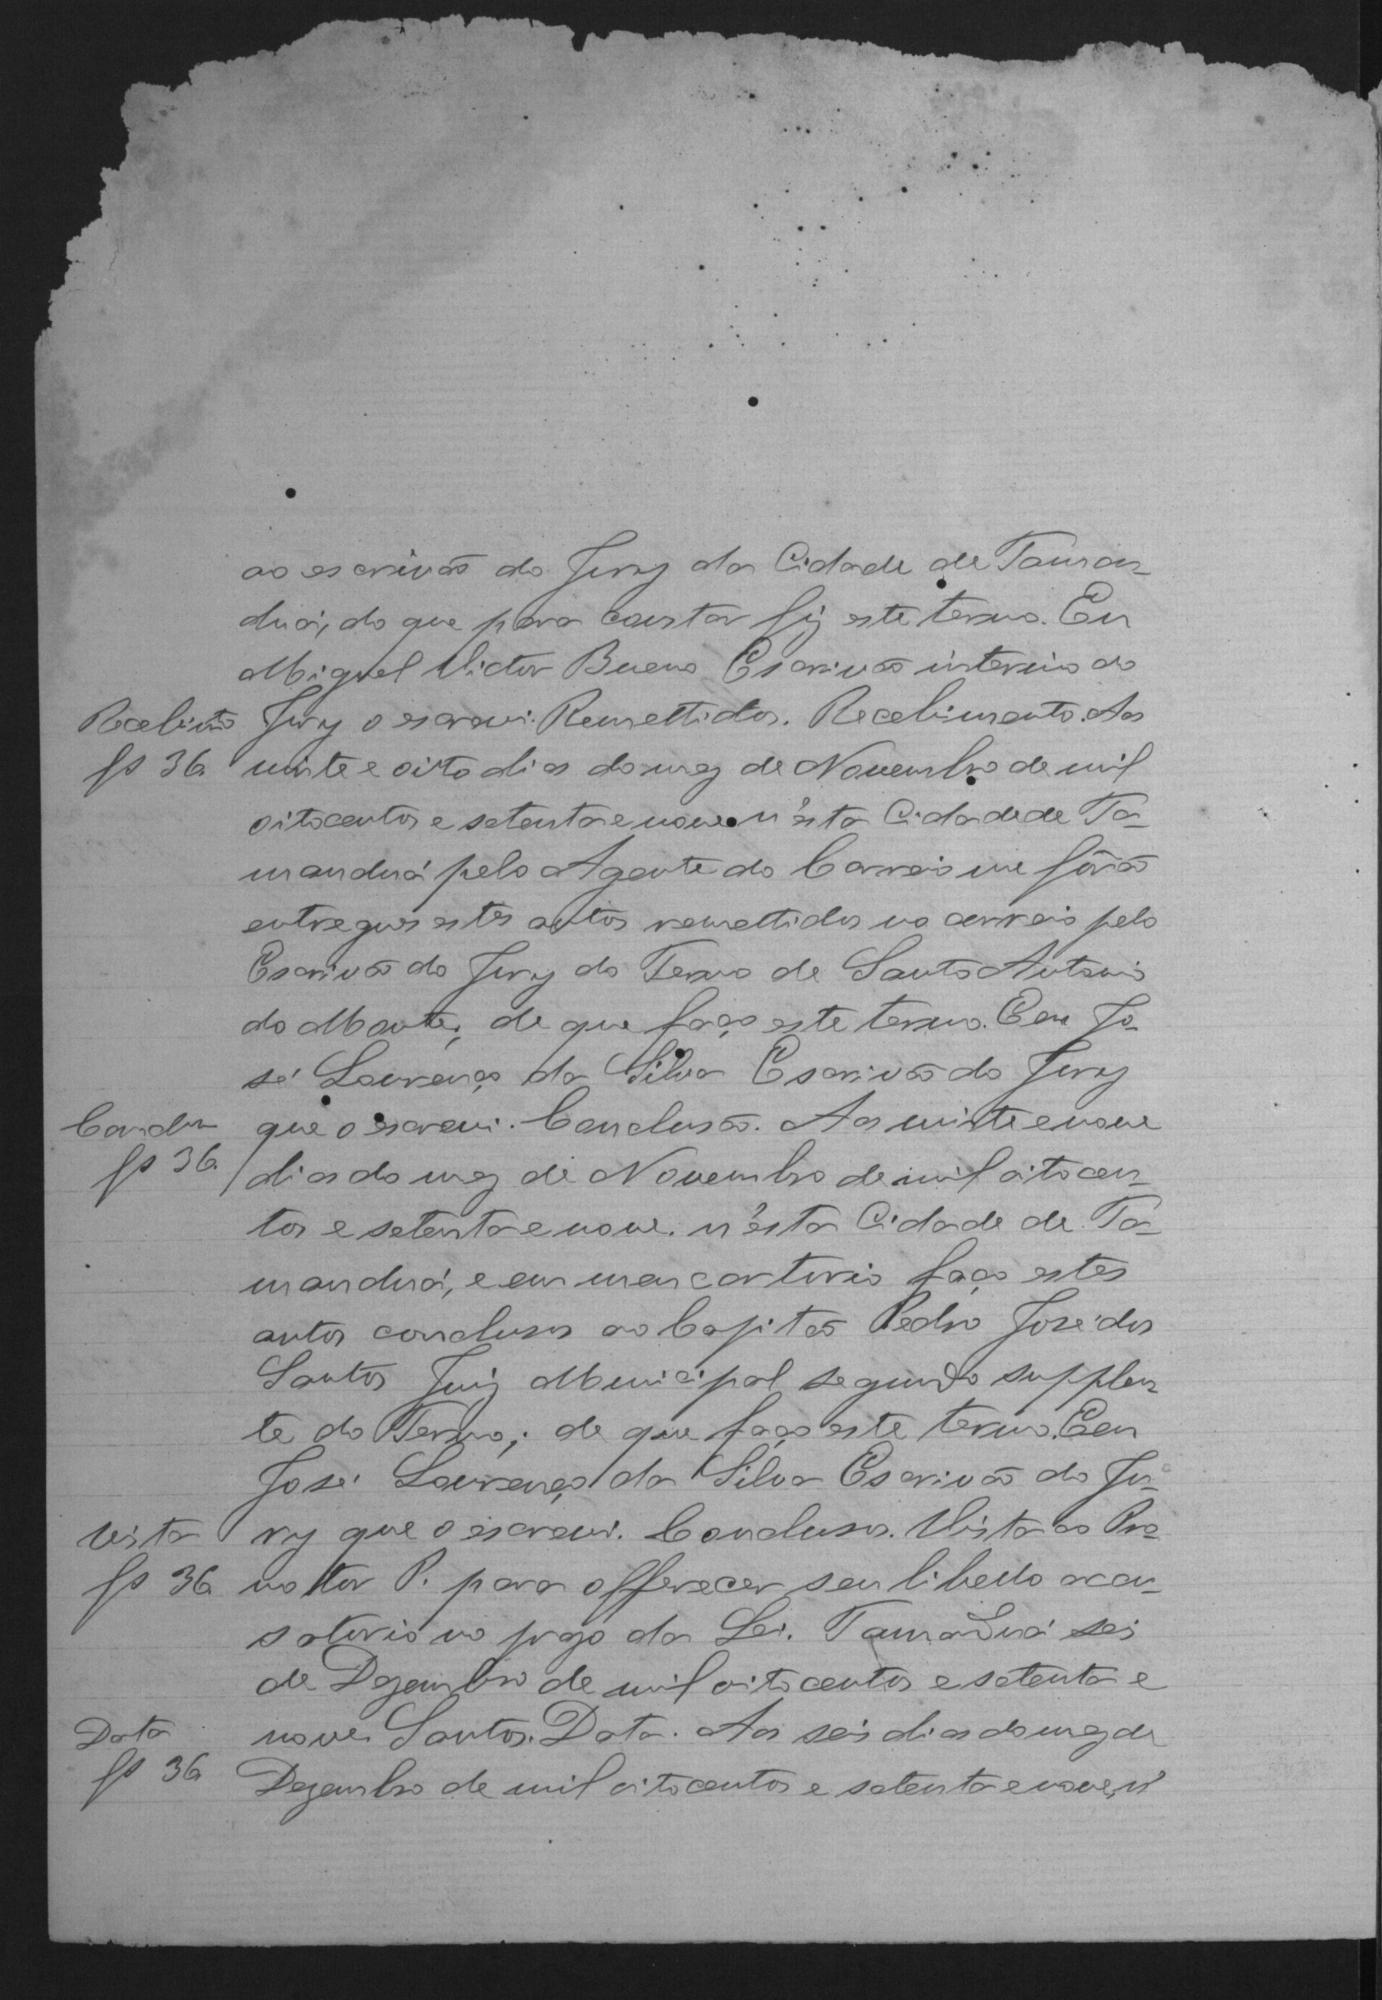 ao escrivão do Jury da Cidade de Taman-
duá, do que para constar fiz este termo. Eu
Miguel Victor Bueno Escrivão interino do
Recebimto Jury o escrevi. Remettidos. Recebimento. Aos
fs 36 vinte e oito dias do mez de Novembro de mil
oitocentos e setenta e nove n'esta Cidade de Ta-
manduá pelo Agente do Correio me forão
entregues estes autos remettidos no correio pelo
Escrivão do Jury do Termo de Santo Antonio
do Monte; de que faço este termo. Eeu Jo-
sé Lourenço da Silva Escrivão do Jury
Conclu que o escrevi. Conclusão. Aos vinte e nove
fs 36 dias do mez de Novembro de mil oitocen-
tos e setenta e nove. n'esta Cidade de Ta-
manduá, e em meu cartorio faço estes
autos conclusos ao Capitão Pedro José dos
Santos Juiz Municipal segundo supplen-
te do Termo; de que faço este termo. Eeu
José Lourenço da Silva Escrivão do Ju-
Vista ry que o escrevi. Conclusos. Vista ao Pro-
fs 36 motor P. para offerecer seu libello acu-
satorio no prazo da Lei. Tamanduá seis
de Dezembro de mil oitocentos e setenta e
Data nove. Santos. Data. Aos seis dias do mez de
fs 36 Dezembro de mil oitocentos e setenta e nove, n'